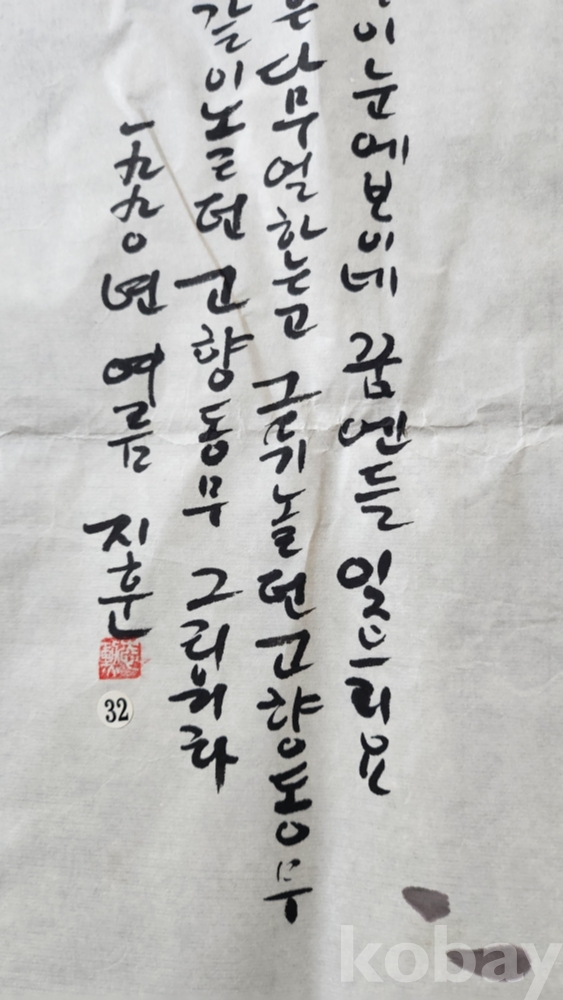 이눈에보이네 꿈엔들 잊으리요
은다무얼하는고 그뛰놀던고향동무
같이놀던 고향동무 그리워라
一九九〇년 여름 지훈
32
kobay